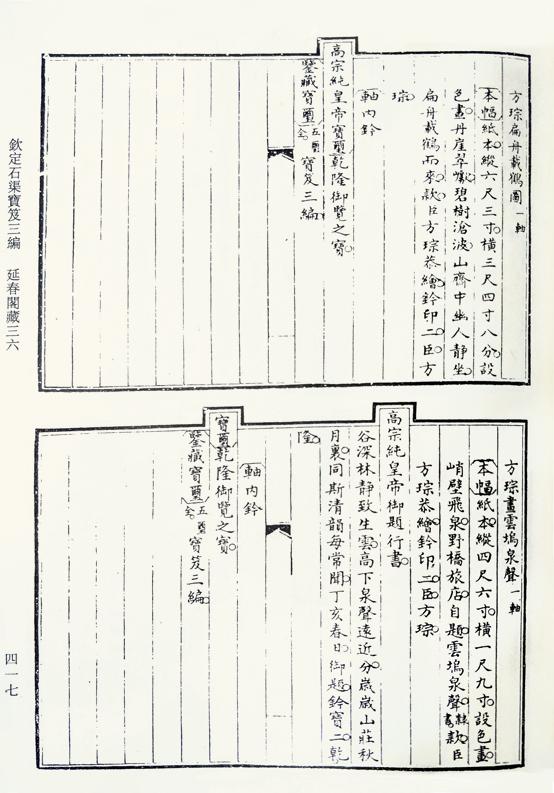 方琮扁舟載鶴圖一軸
本幅紙本縱六尺三寸橫三尺四寸八分設
色畫丹崖翠巘碧樹滄波山齋中幽人靜坐
扁舟載鶴而來款臣方琮恭繪鈐印二臣方
琮
軸內鈐
高宗純皇帝寶璽乾隆御覽之寶
鑒藏寶璽五璽全寶笈三編
方琮畫雲塢泉聲一軸
本幅紙本縱四尺六寸橫一尺九寸設色畫
峭壁飛泉野橋旅店自題雲塢泉聲隸書款臣
方琮恭繪鈐印二臣方琮
高宗純皇帝御題行書
谷深林靜致生雲高下泉聲遠近分嵗嵗山莊秋
月裏同斯清韻每常聞丁亥春日御題鈐寶二乾
隆
軸內鈐
寶璽乾隆御覽之寶
鑒藏寶璽五璽全寶笈三編
欽定石渠寶笈三編 延春閣藏三六
四一七